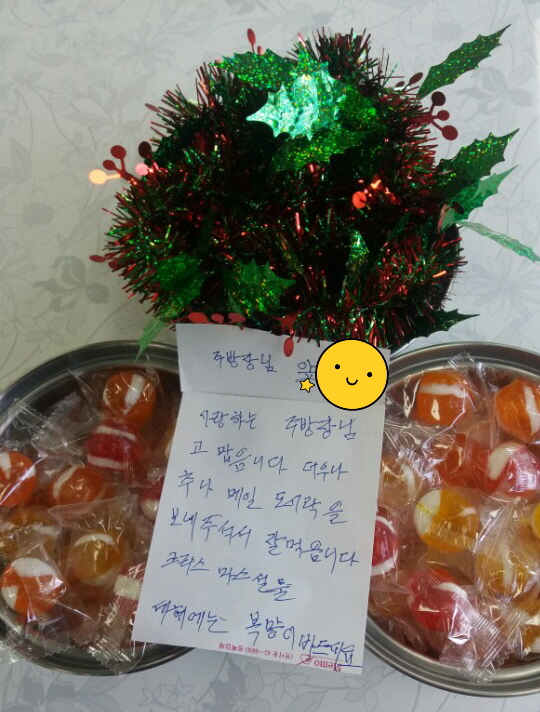 주방장님 앞
사랑하는 주방장님
고맙습니다 더우나
추나 매일 도시락을
보내주셔서 잘먹읍니다
크라스 마스 선물
새해에는 복많이 받으세요
Memo